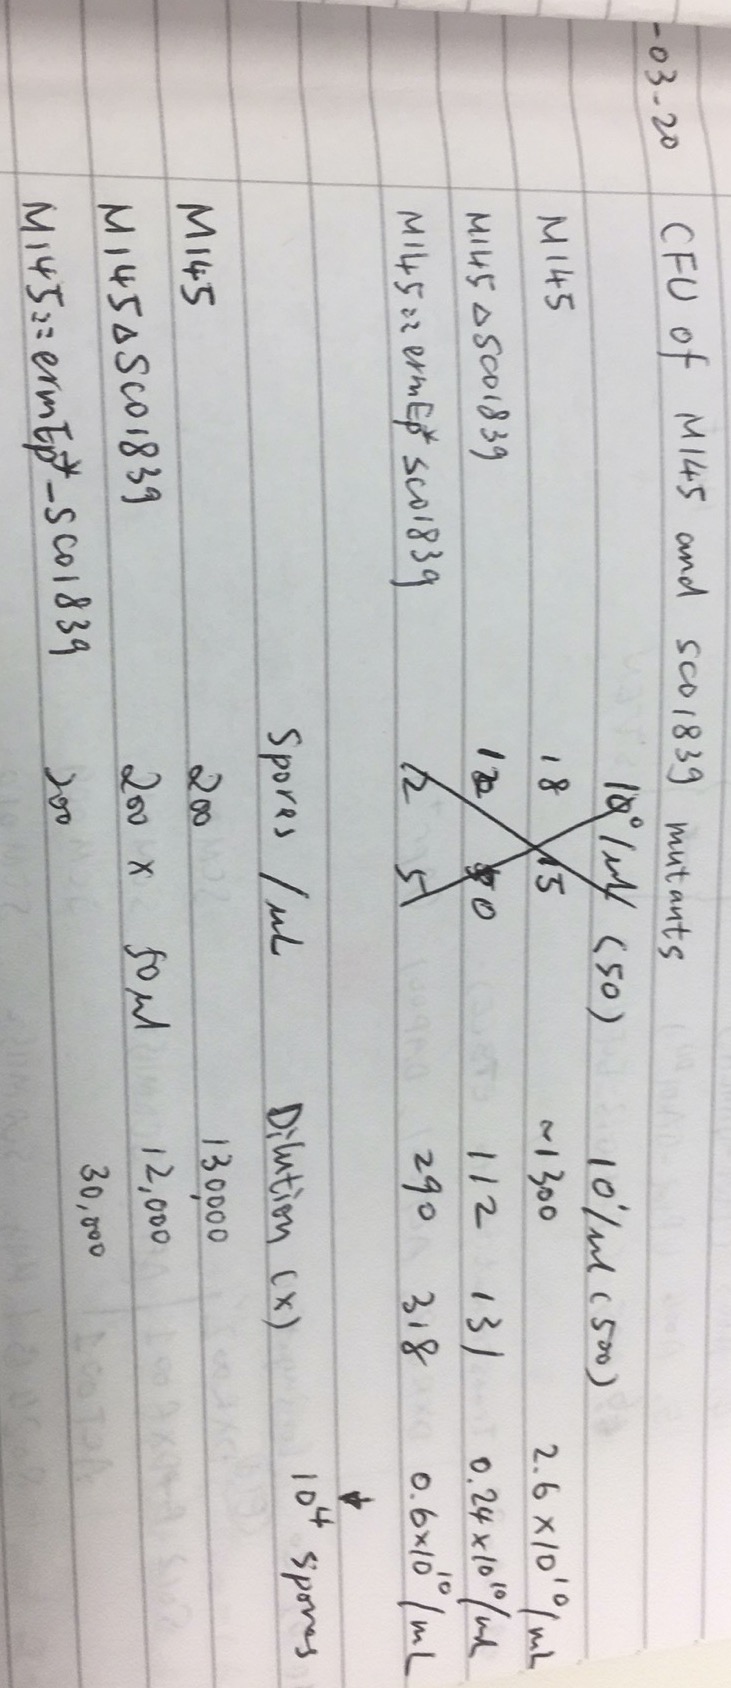 -03-20 CFU of M145 and SCO1839 mutants
10⁰/ml (50) 10¹/ml (500)
M145 18 15 ~1300 2.6 ×10¹⁰/mL
M145 ΔSCO1839 12 0 112 131 0.24×10¹⁰/ml
M145:: ermEp* SCO1839 2 5 290 318 0.6×10¹⁰/mL
↓
10⁴ spores
Spores /uL Dilution (x)
M145 200 130,000
M145ΔSCO1839 200 x 50 ul 12,000
M145::ermEp*-SCO1839 200 30,000